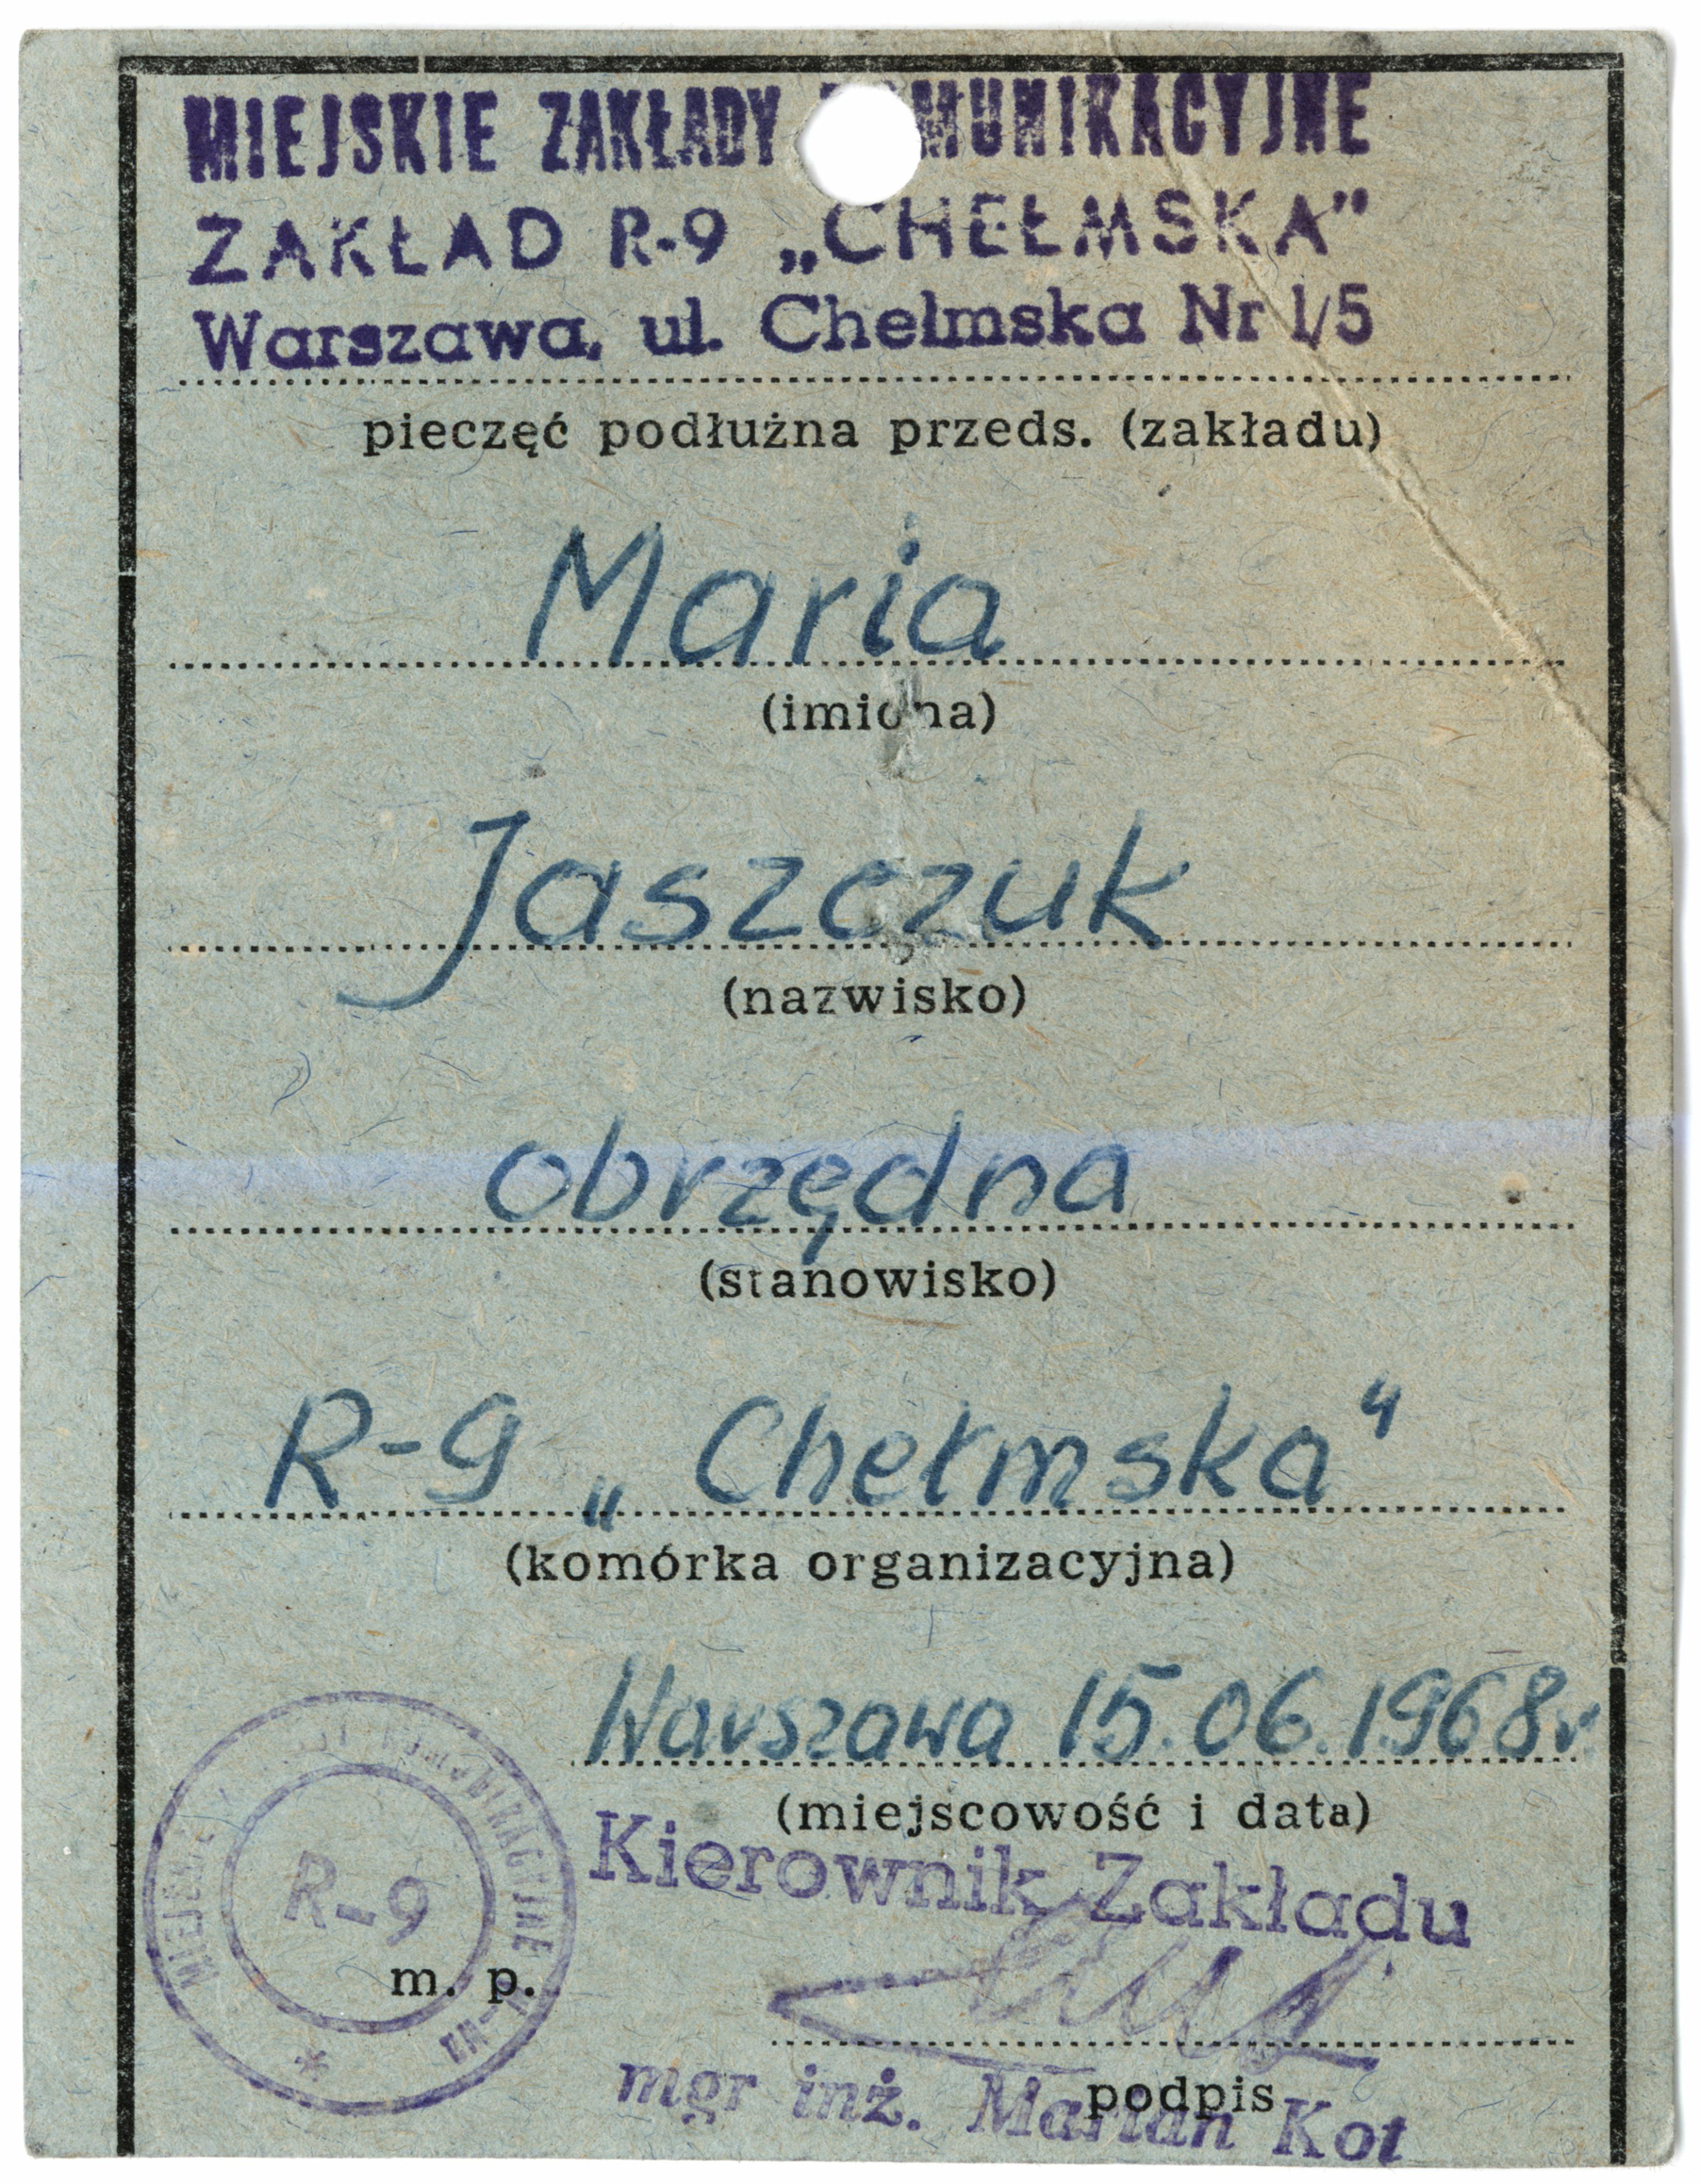 MIEJSKIE ZAKŁADY KOMUNIKACYJNE
ZAKŁAD R-9 „CHEŁMSKA"
Warszawa, ul. Chełmska Nr 1/5
pieczęć podłużna przeds. (zakładu)
Maria
(imiona)
Jaszczuk
(nazwisko)
obrzędna
(stanowisko)
R-9 „Chełmska"
(komórka organizacyjna)
Warszawa 15.06.1968r
(miejscowość i data)
Kierownik Zakładu
R-9
m. p.
podpis
mgr inż. Marian Kot